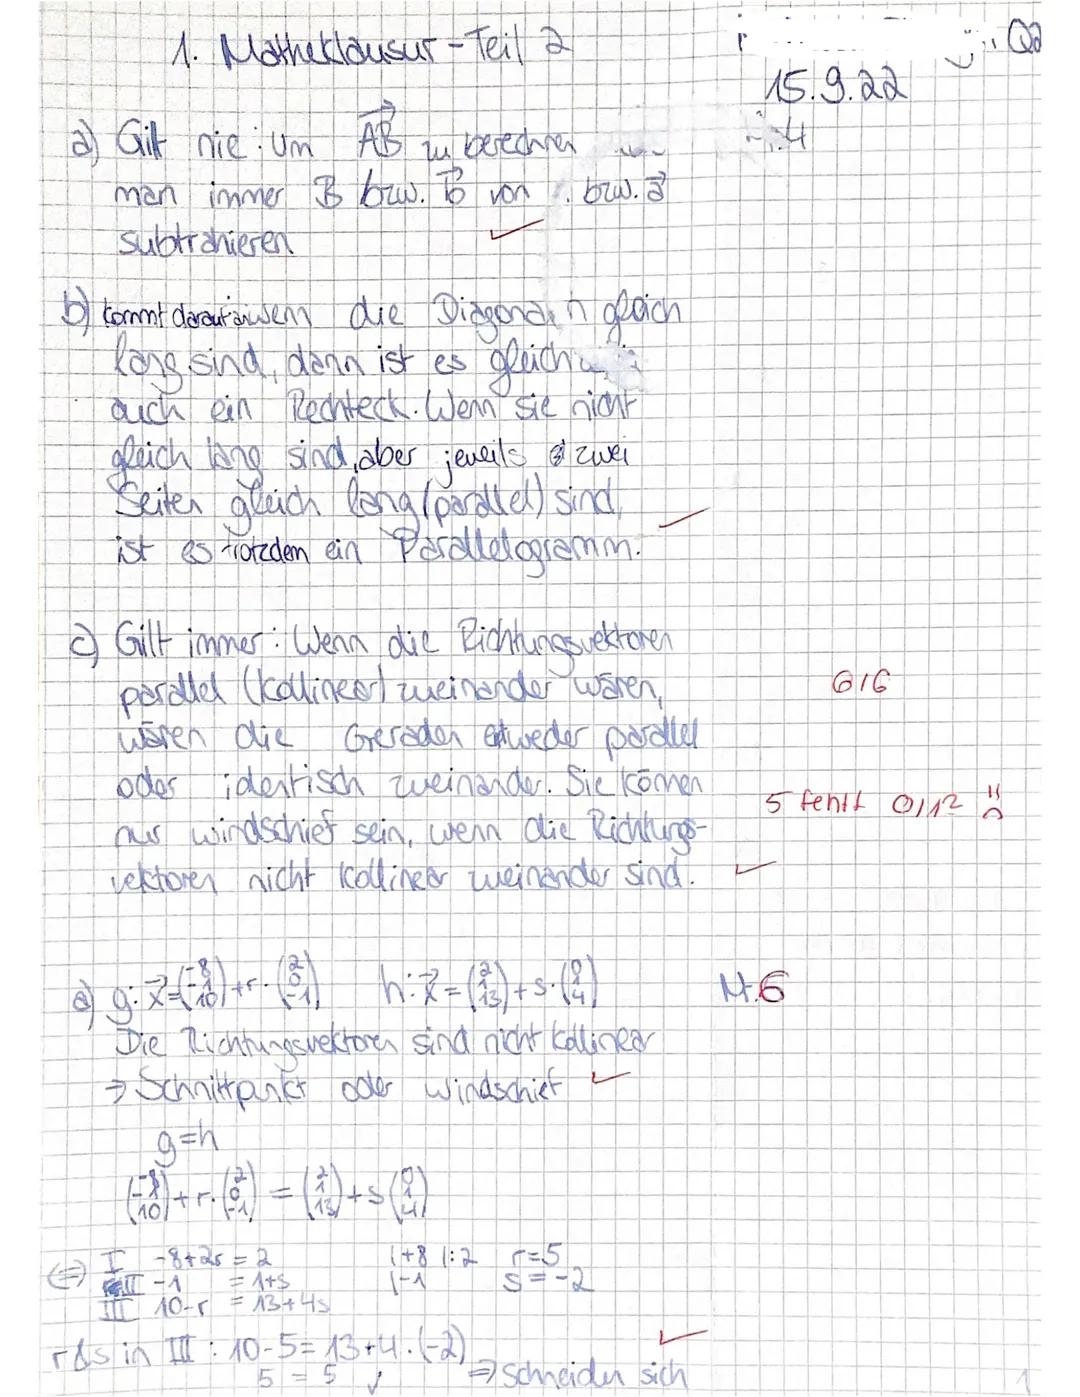 1. Matheklausur - Teil 2
Q2
15.9.22
4
a) Gilt nie: Um AB⃗ zu berechnen
man immer B bzw. b⃗ von bzw. a⃗
subtrahieren ✓
b) kommt darauf an: wenn die Diagonalen gleich
lang sind, dann ist es
auch ein Rechteck. Wenn sie nicht
gleich lang sind, aber jeweils zwei
Seiten gleich lang (parallel) sind, ✓
ist es trotzdem ein Parallelogramm.
c) Gilt immer: Wenn die Richtungsvektoren
parallel (kollinear) zueinander wären,
6/6
wären die Geraden entweder parallel
oder identisch zueinander. Sie können
5 fehlt 0/12 :(
nur windschief sein, wenn die Richtungs-
vektoren nicht kollinear zueinander sind. ✓
a) g: x⃗ = (-8 -1 10) + r · (2 0 -1) h: x⃗ = (2 1 13) + s · (0 1 4) N.6
Die Richtungsvektoren sind nicht kollinear
⇒ Schnittpunkt oder windschief ✓
g=h
(-8 -1 10) + r · (2 0 -1) = (2 1 13) + s (0 1 4)
⇔ I -8+2r = 2 |+8 |:2 r=5
II -1 = 1+s |-1 s=-2
III 10-r = 13+4s
r & s in III: 10-5 = 13+4·(-2) ✓
5 = 5 ✓ ⇒ schneiden sich
1